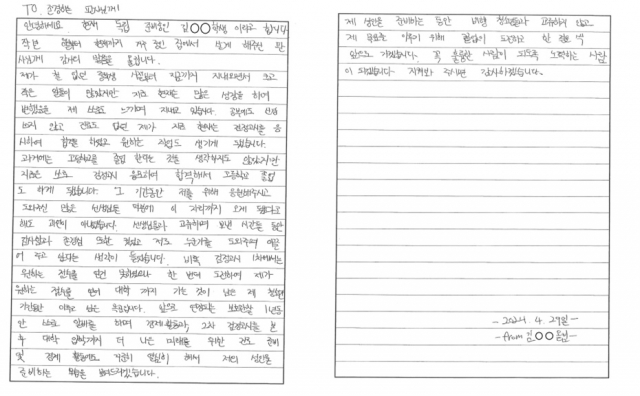 TO 존경하는 판사님께!
안녕하세요 현재 독립 준비중인 김○○학생 이라고 합니다.
작년 현재까지 집에서 살게 해주신 판
사님께 감사의 말씀을 올립니다.
제가 철 없던 중학생 시절부터 지금까지 지내오면서 크고
작은 일들이 많았지만 지금 현재는 많은 성장을 하여
제 스스로 느끼며 지내고 있습니다. 공부에도 신경
쓰지 않고 제가 지금 현재는 검정고시를 응
시하여 합격을 하였고 원하는 직업도 생기게 되었습니다.
과거에는 고등학교를 졸업 한다는 것을 생각하지도 않았지만
지금은 스스로 검정고시 합격해서 고등학교 졸업
도 하게 되었습니다. 그 기간동안 저를 위해 응원해주시고
도와주신 많은 선생님들 덕분에 이 자리까지 오게 됐다고
해도 과언이 아니었습니다. 선생님들과 교류하며 보낸 시간들 동안
감사함과 존경심 또한 저도 누군가를 도와주며 이끌
어 주고 싶다는 생각이 들었습니다. 비록 검정고시 1차에서는
원하는 점수를 얻진 못하였으나 한 번더 도전하여 제가
원하는 점수를 얻어 대학 까지 가는 것이 남은 제
기간동안 이루고 싶은 목표입니다. 앞으로 연장되는 보호관찰 1년동
안 스스로 알바를 하며 경제활동과, 2차 검정고시를 본
후 대학 입학까지 더 나은 미래를 위한 진로 준비
및 경제 활동에도 열심히 해서 저의 성인을
준비하는 모습을 보여드리겠습니다.
제 성인을 준비하는 동안 비행 청소년들과 교류하지 않고
제 목표를 이루기 위해 끊임없이 도전하고 한 걸음 씩
앞으로 가겠습니다. 꼭 훌륭한 사람이 되도록 노력하는 사람
이 되겠습니다. 지켜봐 주시면 감사하겠습니다.
- 2024. 4. 29일 -
- From 김○○올림 -